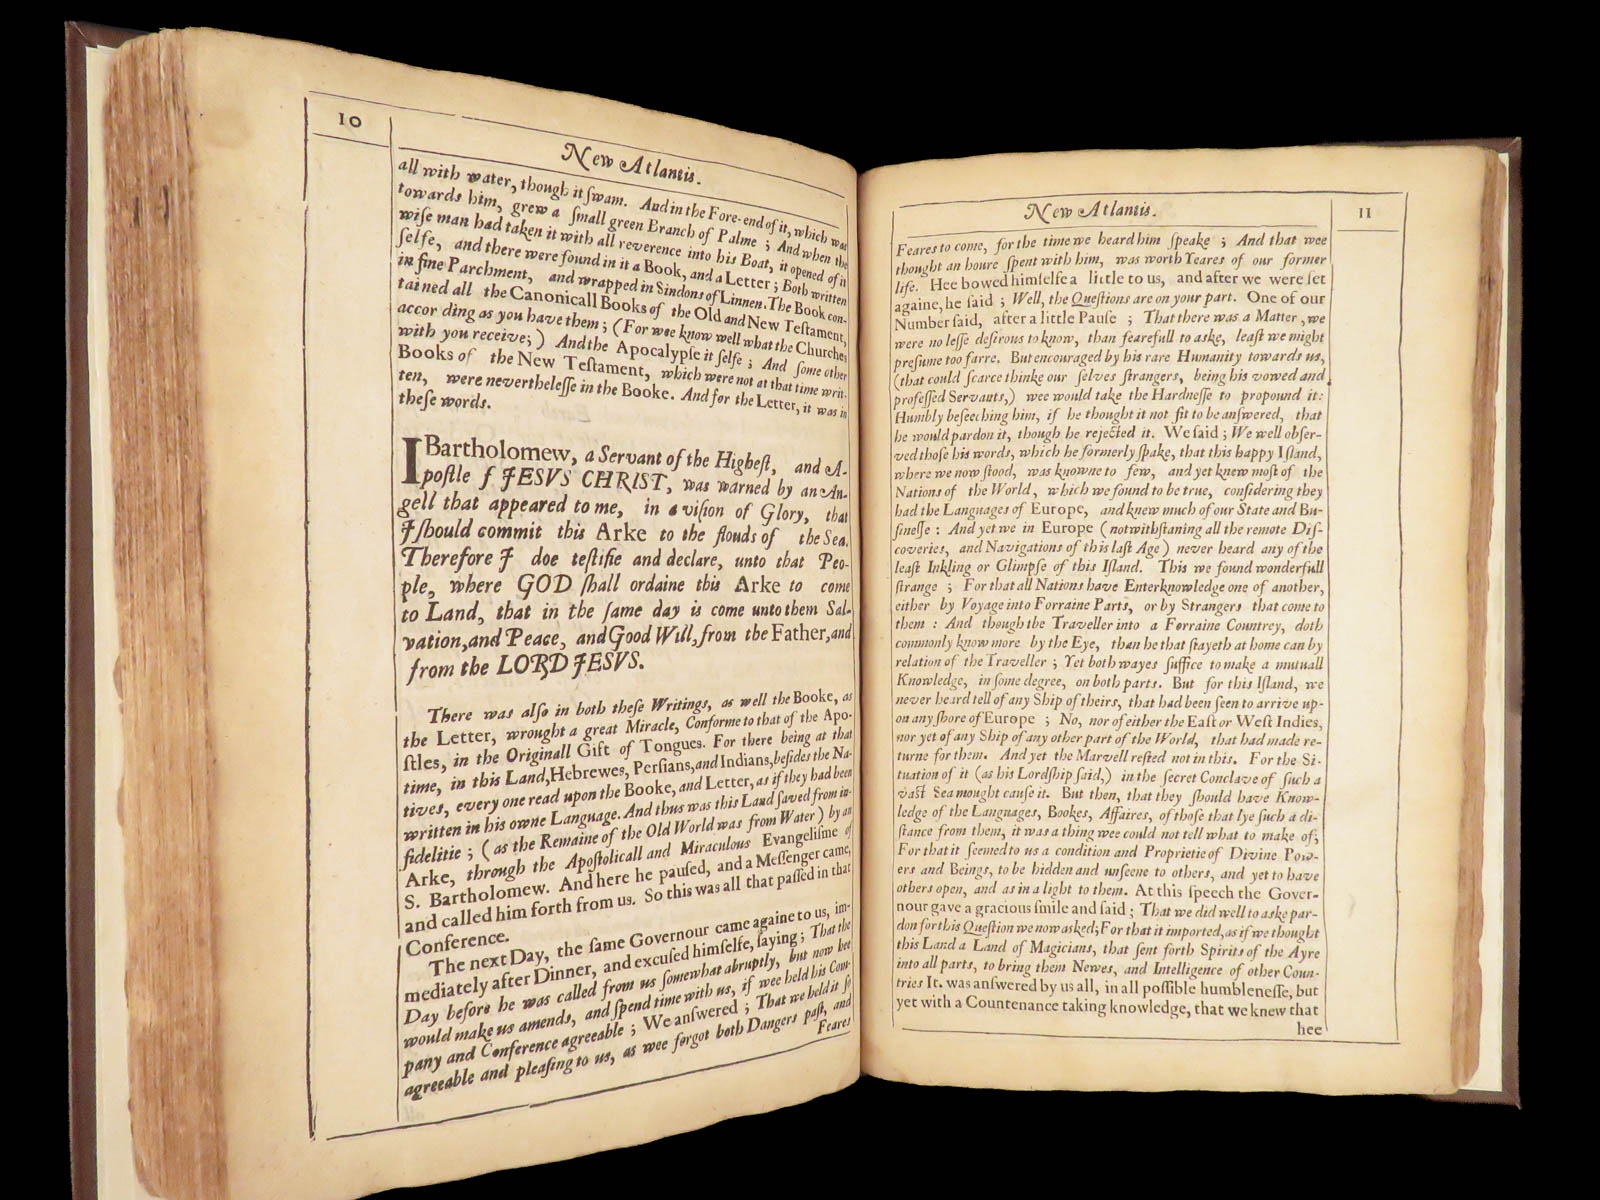 10
New Atlantis.
all with water, though it ſwam. And in the Fore-end of it, which was
towards him, grew a ſmall green Branch of Palme ; And when the
wiſe man had taken it with all reverence into his Boat, it opened of it
ſelfe, and there were found in it a Book, and a Letter ; Both written
in fine Parchment, and wrapped in Sindons of Linnen. The Book con-
tained all the Canonicall Books of the Old and New Teſtament,
accor ding as you have them ; (For wee know well what the Churches
with you receive; ) And the Apocalypſe it ſelfe ; And ſome other
Books of the New Teſtament, which were not at that time writ-
ten, were nevertheleſſe in the Booke. And for the Letter, it was in
theſe words.
I Bartholomew, a Servant of the Higheſt, and A-
poſtle f JESVS CHRIST, was warned by an An-
gell that appeared to me, in a viſion of Glory, that
I ſhould commit this Arke to the flouds of the Sea.
Therefore I doe teſtifie and declare, unto that Peo-
ple, where GOD ſhall ordaine this Arke to come
to Land, that in the ſame day is come unto them Sal-
vation, and Peace, and Good Will, from the Father, and
from the LORD JESVS.
There was alſo in both theſe Writings, as well the Booke, as
the Letter, wrought a great Miracle, Conforme to that of the Apo-
ſtles, in the Originall Gift of Tongues. For there being at that
time, in this Land, Hebrewes, Perſians, and Indians, beſides the Na-
tives, every one read upon the Booke, and Letter, as if they had been
written in his owne Language. And thus was this Land ſaved from in-
fidelitie ; ( as the Remaine of the Old World was from Water ) by an
Arke, through the Apoſtolicall and Miraculous Evangeliſme of
S. Bartholomew. And here he pauſed, and a Meſſenger came,
and called him forth from us. So this was all that paſſed in that
Conference.
The next Day, the ſame Governour came againe to us, im-
mediately after Dinner, and excuſed himſelfe, ſaying ; That the
Day before he was called from us ſomewhat abruptly, but now hee
would make us amends, and ſpend time with us, if wee held his Com-
pany and Conference agreeable ; We anſwered ; That we held it ſo
agreeable and pleaſing to us, as wee forgot both Dangers paſt, and
Feares
New Atlantis.
11
Feares to come, for the time we heard him ſpeake ; And that wee
thought an houre ſpent with him, was worth Yeares of our former
life. Hee bowed himſelfe a little to us, and after we were ſet
againe, he ſaid ; Well, the Queſtions are on your part. One of our
Number ſaid, after a little Pauſe ; That there was a Matter, we
were no leſſe deſirous to know, than fearefull to aske, leaſt we might
preſume too farre. But encouraged by his rare Humanity towards us,
(that could ſcarce thinke our ſelves ſtrangers, being his vowed and
profeſſed Servants,) wee would take the Hardneſſe to propound it:
Humbly beſeeching him, if he thought it not fit to be anſwered, that
he would pardon it, though he rejected it. We ſaid ; We well obſer-
ved thoſe his words, which he formerly ſpake, that this happy Iſland,
where we now ſtood, was knowne to few, and yet knew moſt of the
Nations of the World, which we found to be true, conſidering they
had the Languages of Europe, and knew much of our State and Bu-
ſineſſe : And yet we in Europe (notwithſtaning all the remote Diſ-
coveries, and Navigations of this laſt Age) never heard any of the
leaſt Inkling or Glimpſe of this Iſland. This we found wonderfull
ſtrange ; For that all Nations have Enterknowledge one of another,
either by Voyage into Forraine Parts, or by Strangers that come to
them : And though the Traveller into a Forraine Countrey, doth
commonly know more by the Eye, than he that ſtayeth at home can by
relation of the Traveller ; Yet both wayes ſuffice to make a mutuall
Knowledge, in ſome degree, on both parts. But for this Iſland, we
never heard tell of any Ship of theirs, that had been ſeen to arrive up-
on any ſhore of Europe ; No, nor of either the Eaſt or Weſt Indies,
nor yet of any Ship of any other part of the World, that had made re-
turne for them. And yet the Marvell reſted not in this. For the Si-
tuation of it (as his Lordſhip ſaid,) in the ſecret Conclave of ſuch a
vaſt Sea mought cauſe it. But then, that they ſhould have Know-
ledge of the Languages, Bookes, Affaires, of thoſe that lye ſuch a di-
ſtance from them, it was a thing wee could not tell what to make of;
For that it ſeemed to us a condition and Proprietie of Divine Pow-
ers and Beings, to be hidden and unſeene to others, and yet to have
others open, and as in a light to them. At this ſpeech the Gover-
nour gave a gracious ſmile and ſaid ; That we did well to aske par-
don for this Queſtion we now asked; For that it imported, as if we thought
this Land a Land of Magicians, that ſent forth Spirits of the Ayre
into all parts, to bring them Newes, and Intelligence of other Coun-
tries It. was anſwered by us all, in all poſſible humbleneſſe, but
yet with a Countenance taking knowledge, that we knew that
hee